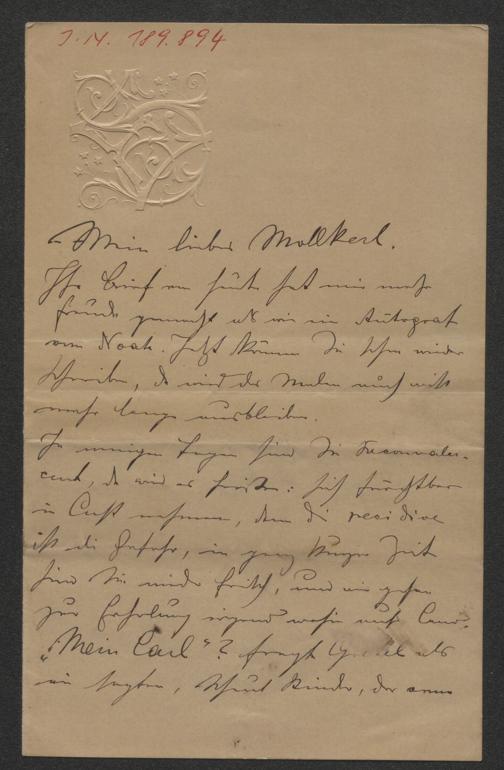 I.N. 189.894
Mein lieber Mollkerl.
Ihr Brief von heute hat mir mehr
Freude gemacht als wie ein Autograf
vom Noah. Jetzt können Sie schon wieder
schreiben, da wird das Malen auch nicht
mehr lange ausbleiben.
In wenigen Tagen sind Sie Reconvales-
cent, da wird es heißen: sich furchtbar
in Acht nehmen, denn die recidive
ist die Gefahr, in ganz kurzer Zeit
sind Sie wieder frisch, und wir gehen
zur Erholung irgend wohin auf Land.
„Mein Carl“? fragt als
wir sagten, schaut Kinder, der arme